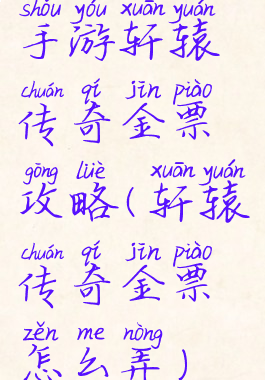 shǒu yóu xuān yuán
手游轩辕
chuán qí jīn piào
传奇金票
gōng lüè xuān yuán
攻略(轩辕
chuán qí jīn piào
传奇金票
zěn me nòng
怎么弄)